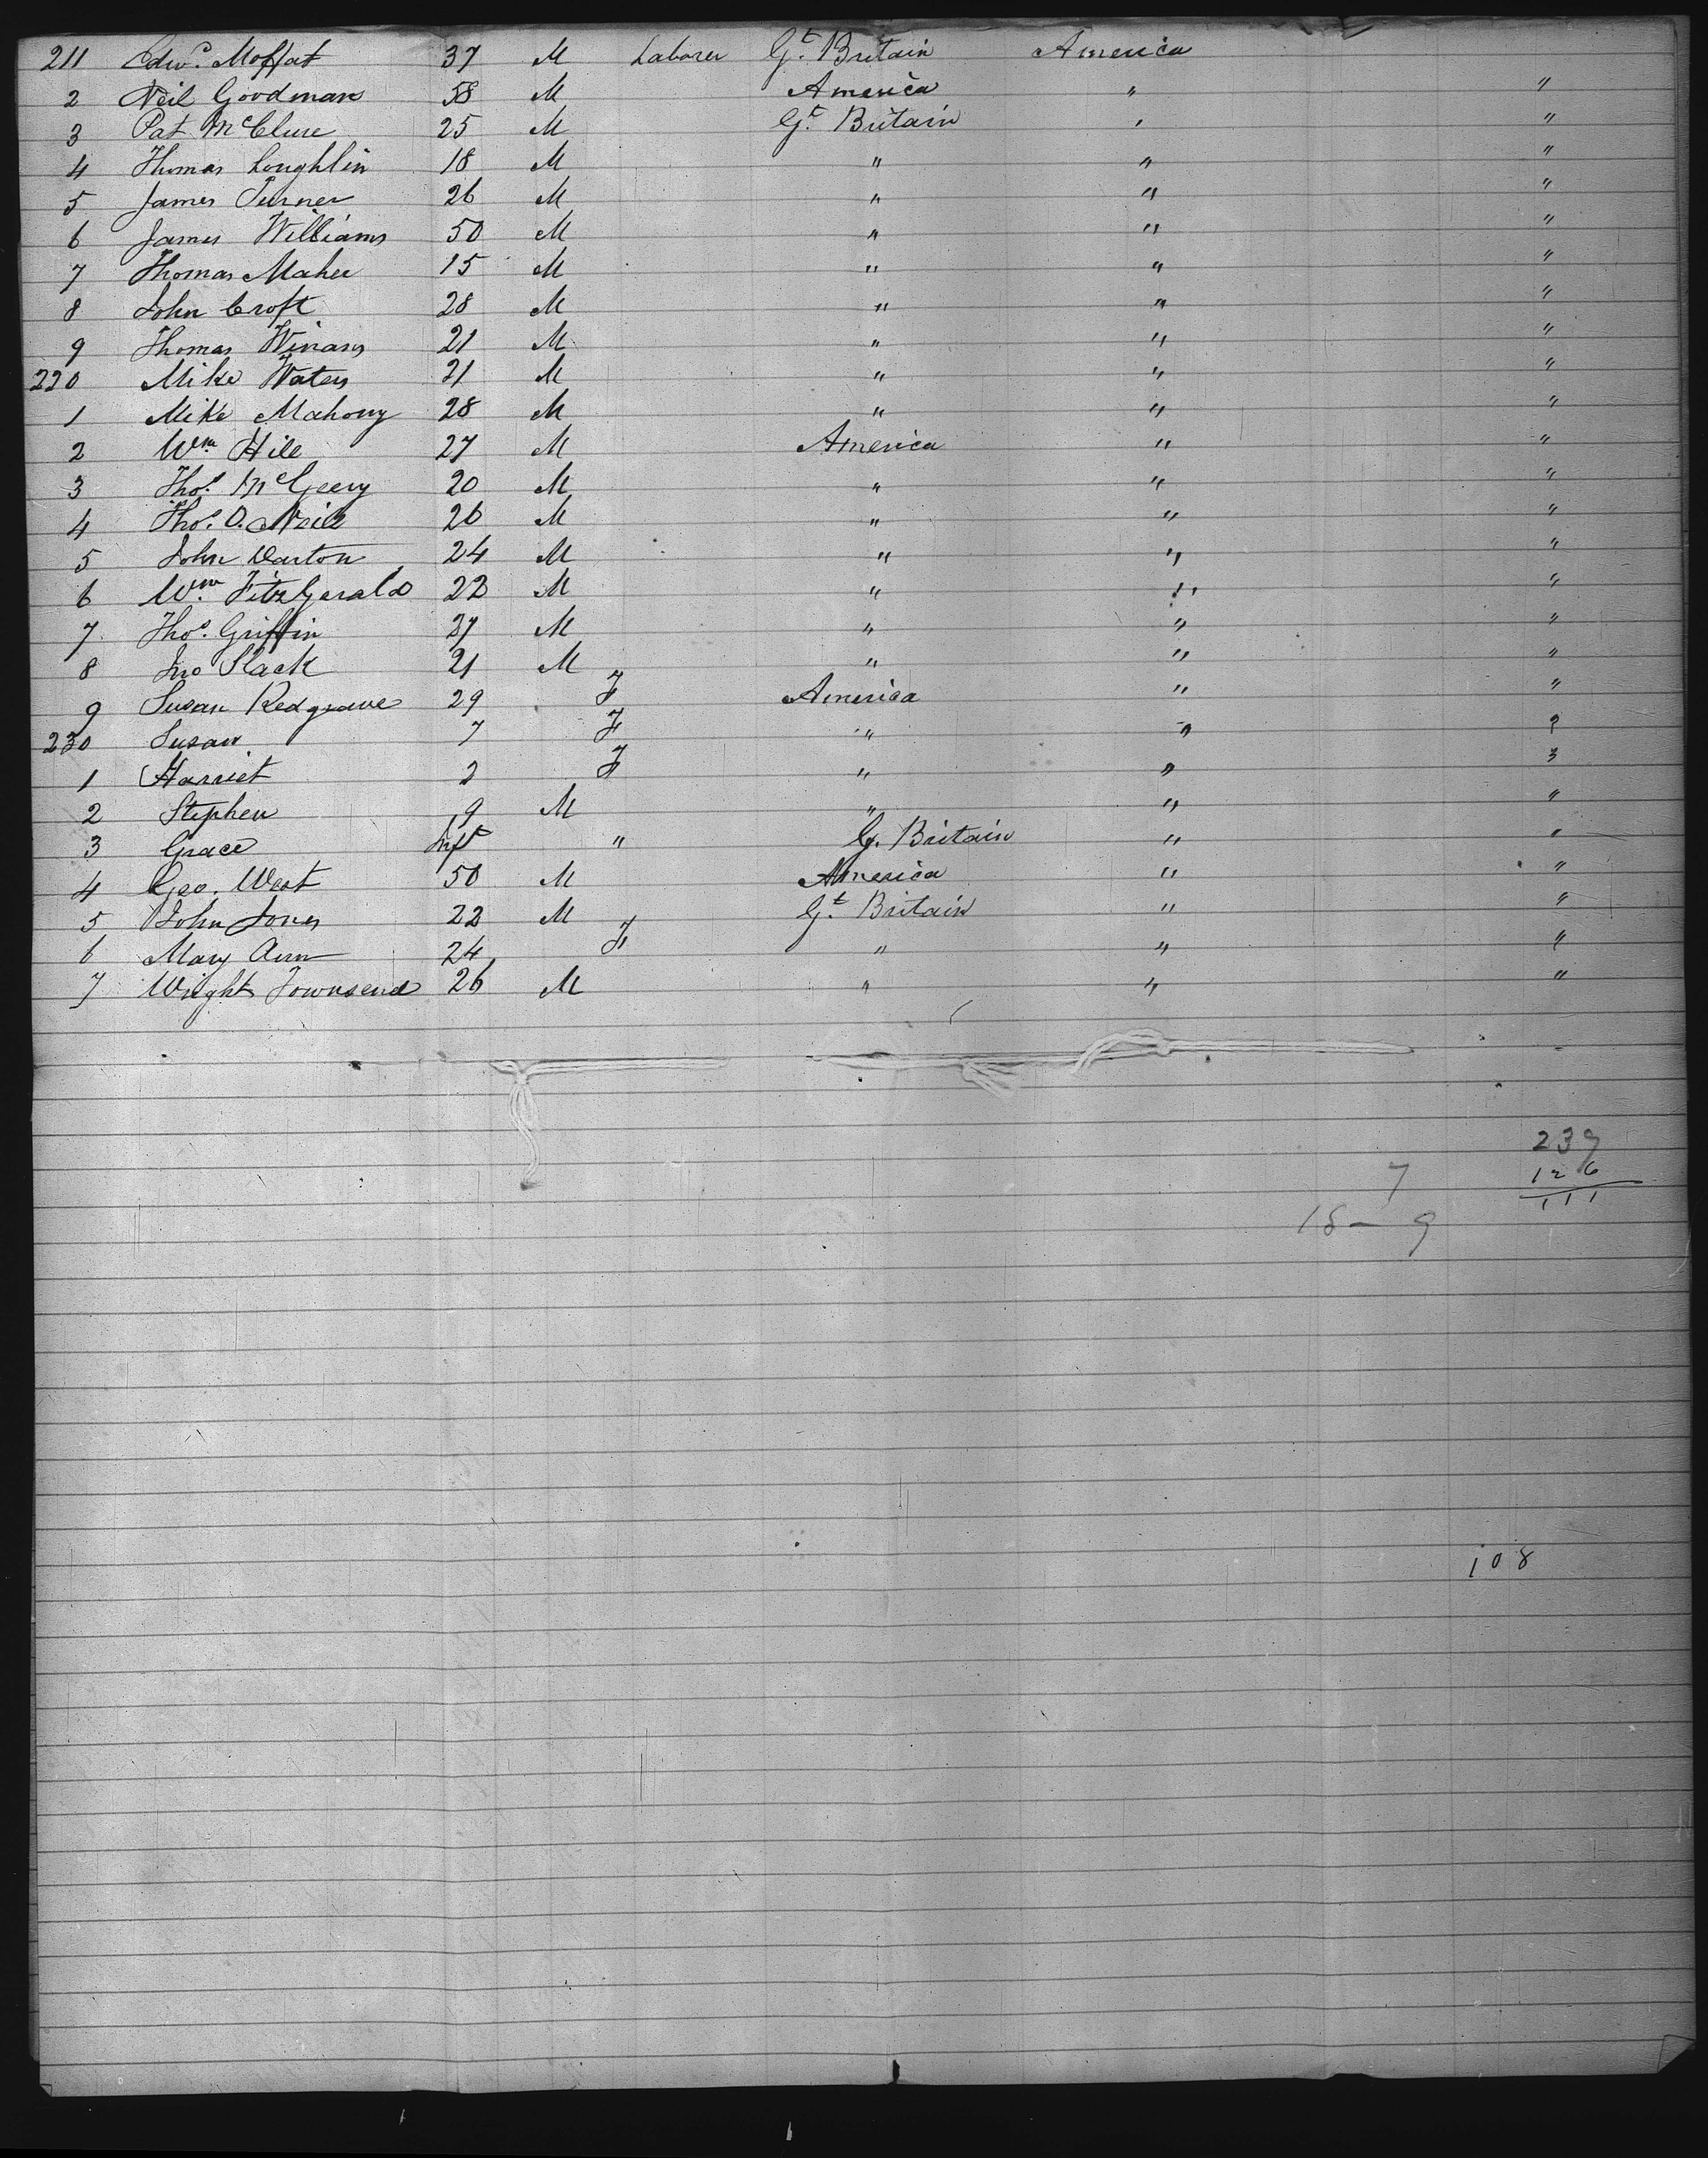 211 Edwd. Moffat 37 M Laborer Gt. Britain America
2 Neil Goodman 58 M America " "
3 Pat McClure 25 M Gt. Britain " "
4 Thomas Loughlin 18 M " " "
5 James Turner 26 M " " "
6 James Williams 50 M " " "
7 Thomas Maher 15 M " " "
8 John Croft 28 M " " "
9 Thomas Winans 21 M " " "
220 Mike Waters 21 M " " "
1 Mike Mahony 28 M " " "
2 Wm. Hill 27 M America " "
3 Thos. McGeery 20 M " " "
4 Thos. O. Neill 26 M " " "
5 John Darton 24 M " " "
6 Wm. FitzGerald 22 M " " "
7 Thos. Griffin 27 M " " "
8 Jno Slack 21 M " " "
9 Susan Redgrave 29 F America " "
230 Susan 7 F " " "
1 Harriet 2 F " " "
2 Stephen 9 M " " "
3 Grace Inft " G. Britain " "
4 Geo. West 50 M America " "
5 John Jones 22 M Gt. Britain " "
6 Mary Ann 24 F " " "
7 Wright Townsend 26 M " " "
239
7 126
111
18 - 9
108